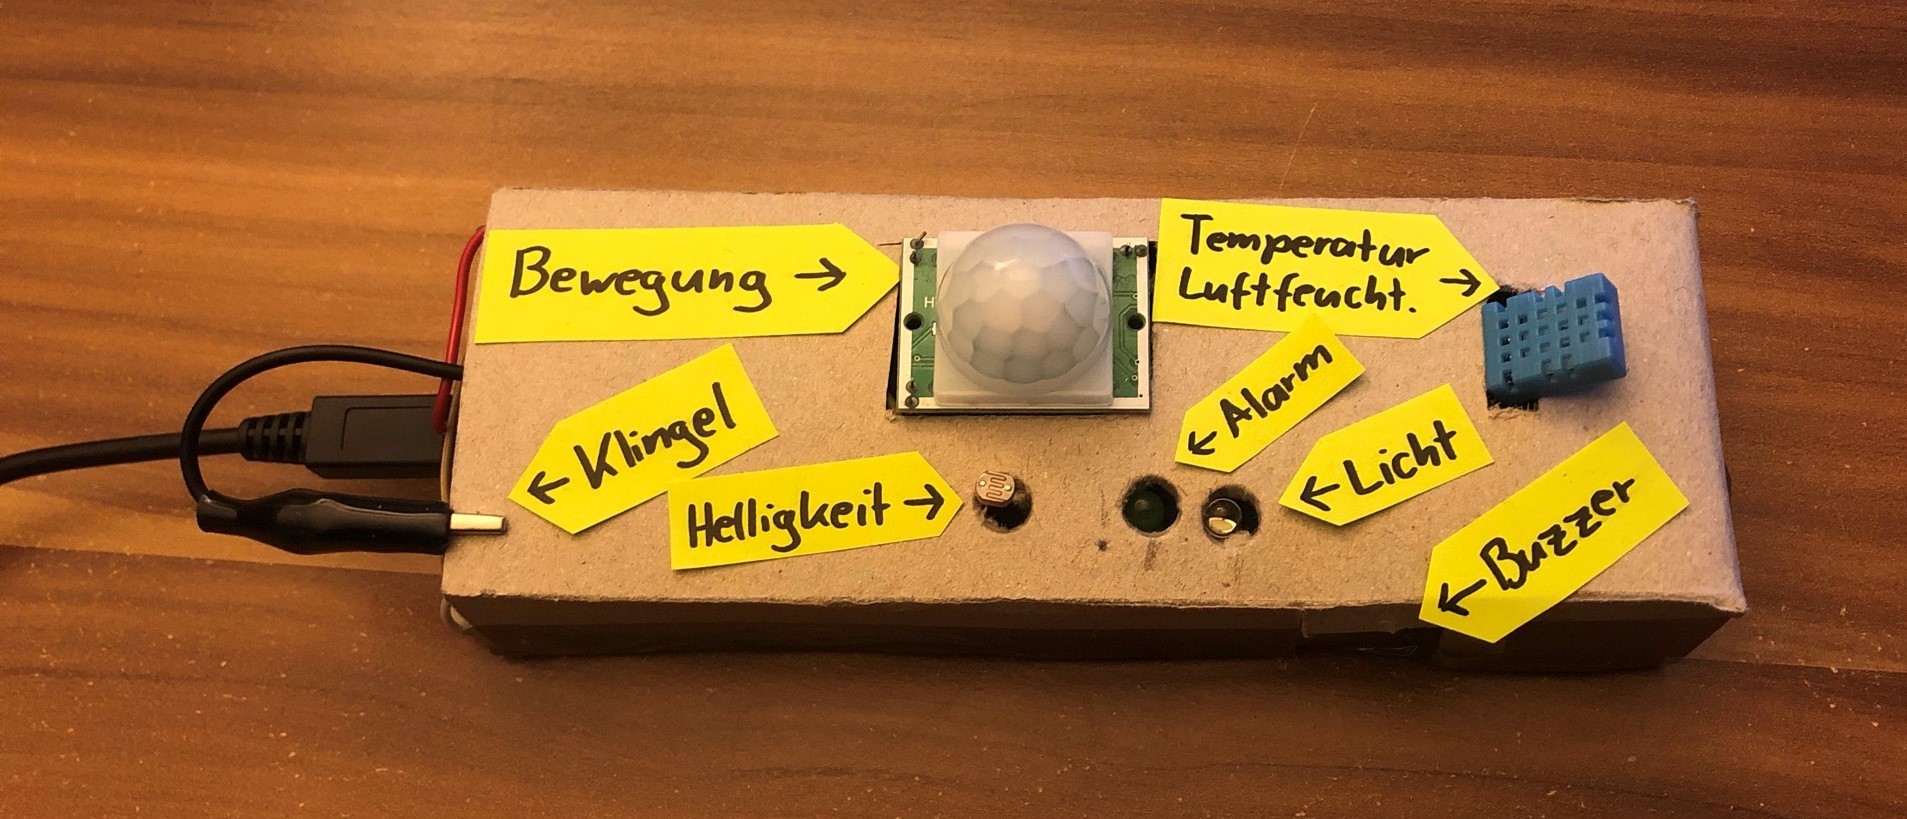 Bewegung →
Temperatur
Luftfeucht. →
← Alarm
← Klingel
Helligkeit →
← Licht
← Buzzer